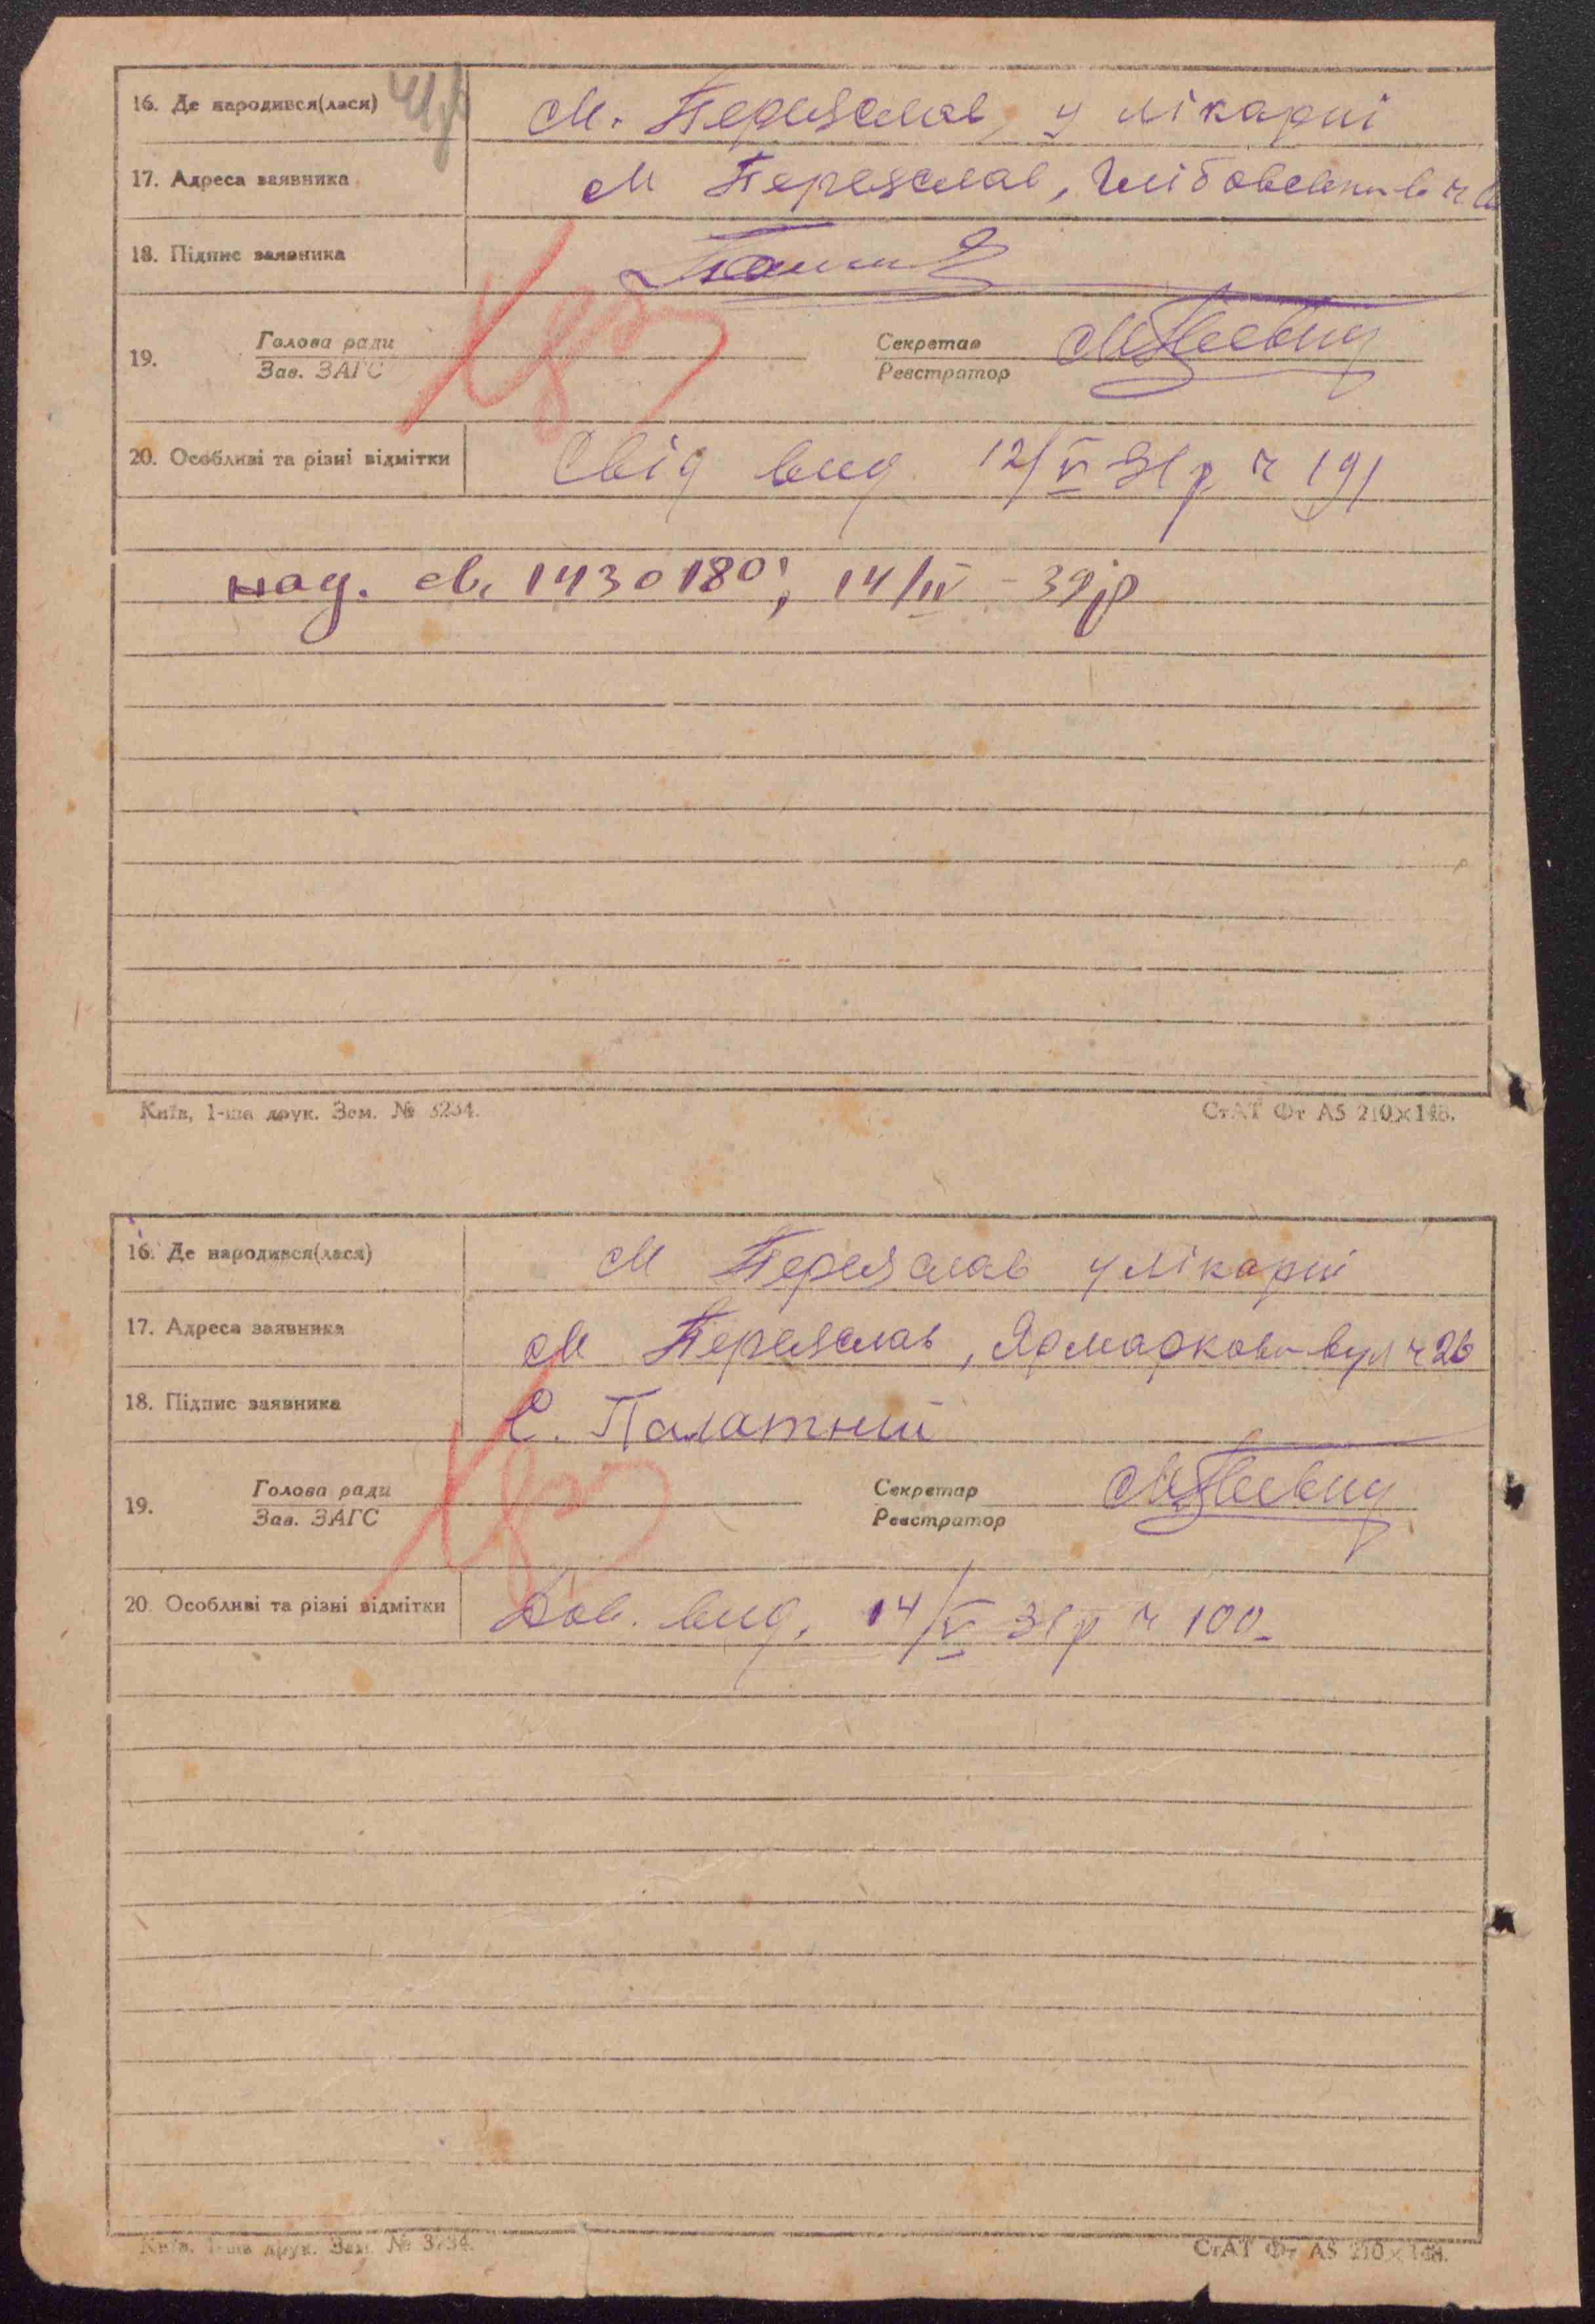 16. Де народився(лася) м. Переяслав, у лікарні
17. Адреса заявника м Переяслав,
18. Підпис заявника
19. Голова ради Секретар
Зав. ЗАГС Реєстратор
20. Особливі та різні відмітки Свід вид 12/V 31р ч 191
над. св. 1430180; 14/IV - 39р
Київ, 1-ша друк. Зам. № 3234. СтАТ Фт А5 210×148.
16. Де народився(лася) м Переяслав у лікарні
17. Адреса заявника м Переяслав, Ярмарков вул ч 26
18. Підпис заявника С. Палатний
19. Голова ради Секретар
Зав. ЗАГС Реєстратор
20. Особливі та різні відмітки Дов. вид. 14/V 31р ч 100
Київ, 1-ша друк. Зам. № 3234. СтАТ Фт А5 210×148.